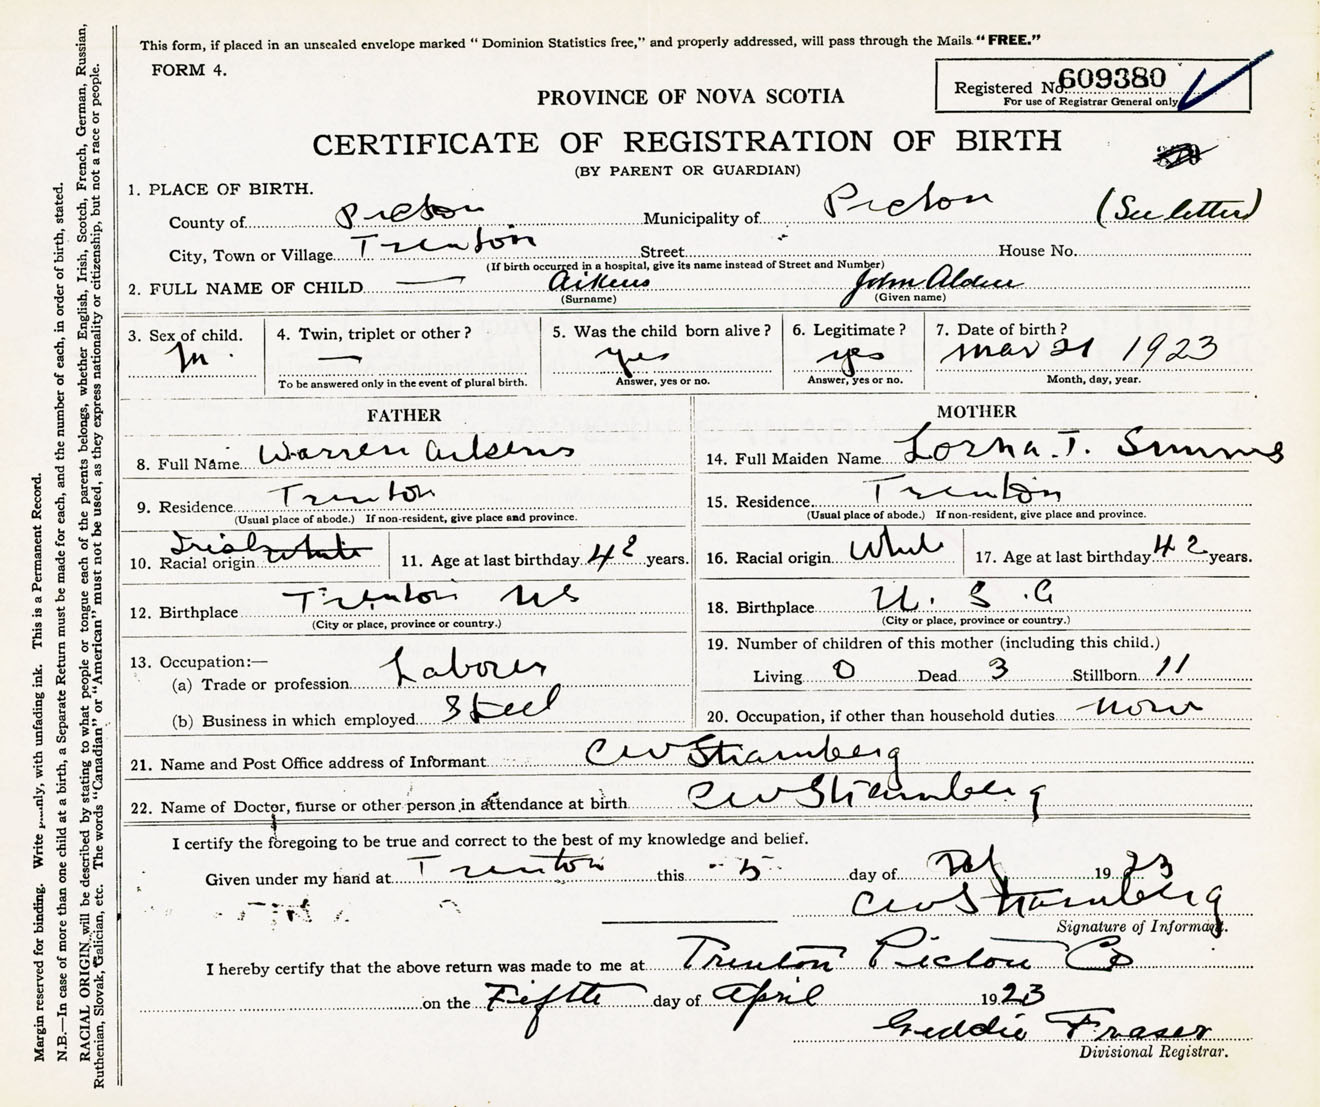 This form, if placed in an unsealed envelope marked "Dominion Statistics free," and properly addressed, will pass through the Mails "FREE."
FORM 4.
Registered No. 609380
For use of Registrar General only
PROVINCE OF NOVA SCOTIA
CERTIFICATE OF REGISTRATION OF BIRTH
(BY PARENT OR GUARDIAN)
1. PLACE OF BIRTH.
County of Pictou Municipality of Pictou (See letter)
City, Town or Village Trenton Street House No.
(If birth occurred in a hospital, give its name instead of Street and Number)
2. FULL NAME OF CHILD — Aikens John Alden
(Surname) (Given name)
3. Sex of child. 4. Twin, triplet or other? 5. Was the child born alive? 6. Legitimate? 7. Date of birth?
M. — yes yes Mar 21 1923
To be answered only in the event of plural birth. Answer, yes or no. Answer, yes or no. Month, day, year.
FATHER MOTHER
8. Full Name Warren Aikens 14. Full Maiden Name Lorna. T. Simms
9. Residence Trenton 15. Residence Trenton
(Usual place of abode.) If non-resident, give place and province. (Usual place of abode.) If non-resident, give place and province.
10. Racial origin Irish white 11. Age at last birthday 42 years. 16. Racial origin White 17. Age at last birthday 42 years.
12. Birthplace Trenton NS 18. Birthplace U. S. A
(City or place, province or country.) (City or place, province or country.)
13. Occupation:— 19. Number of children of this mother (including this child.)
(a) Trade or profession Laborer Living 0 Dead 3 Stillborn 11
(b) Business in which employed Steel 20. Occupation, if other than household duties none
21. Name and Post Office address of Informant CW Stramberg
22. Name of Doctor, nurse or other person in attendance at birth CW Stramberg
I certify the foregoing to be true and correct to the best of my knowledge and belief.
Given under my hand at Trenton this 5 day of 1923
CW Stramberg
Signature of Informant.
I hereby certify that the above return was made to me at Trenton Pictou Co
on the Fifth day of April 1923
Geddie Fraser
Divisional Registrar.
Margin reserved for binding. Write plainly, with unfading ink. This is a Permanent Record.
N.B.—In case of more than one child at a birth, a Separate Return must be made for each, and the number of each, in order of birth, stated.
RACIAL ORIGIN will be described by stating to what people or tongue each of the parents belongs, whether English, Irish, Scotch, French, German, Russian,
Ruthenian, Slovak, Galician, etc. The words "Canadian" or "American" must not be used, as they express nationality or citizenship, but not a race or people.